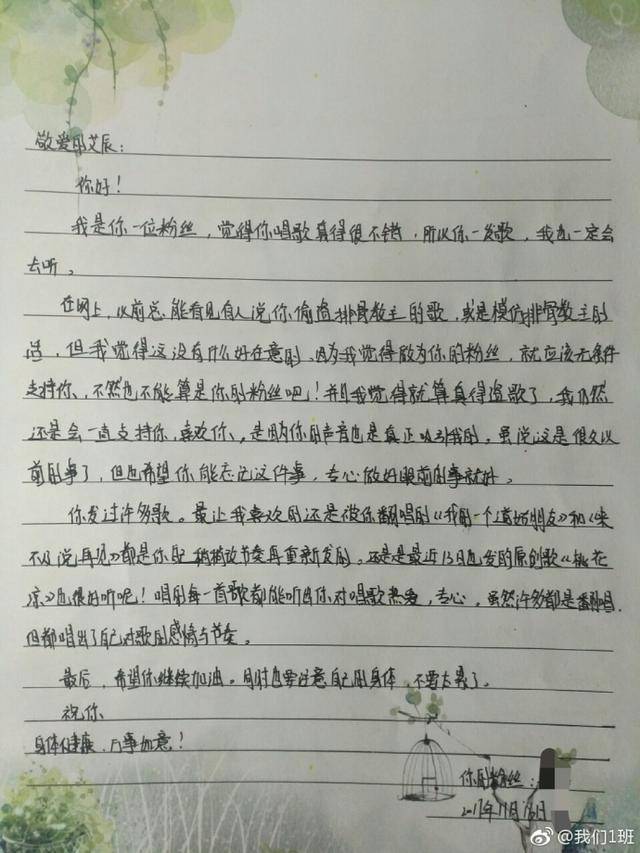 敬爱的艾辰：
你好！
我是你一位粉丝，觉得你唱歌真得很不错，所以你一发歌，我也一定会
去听。
在网上，以前总能看见有人说你偷盗排骨教主的歌，或是模仿排骨教主的
，但我觉得这没有什么好在意的，因为我觉得做为你的粉丝，就应该无条件
支持你、不然也不能算是你的粉丝吧！并且我觉得就算真得盗歌了，我仍然
还是会一直支持你、喜欢你、，是因为你的声音也是真正吸引我的，虽说这是很久以
前的事了，但也希望你能忘记这件事，专心做好眼前的事就好。
你发过许多歌。最让我喜欢的还是被你翻唱的《我的一个道姑朋友》和《来
不及说再见》都是你把稍稍改节奏再重新发的。还是是最近13日也发的原创歌《桃花
凉》也很好听呢！唱的每一首歌都能听出你对唱歌热爱，专心。虽然许多都是翻唱.
但都唱出了自己对歌的感情与节奏。
最后，希望你继续加油。同时也要注意自己的身体，不要太累了。
祝你
身体健康，万事如意！
你的粉丝：
2017年11月 日
@我们1班